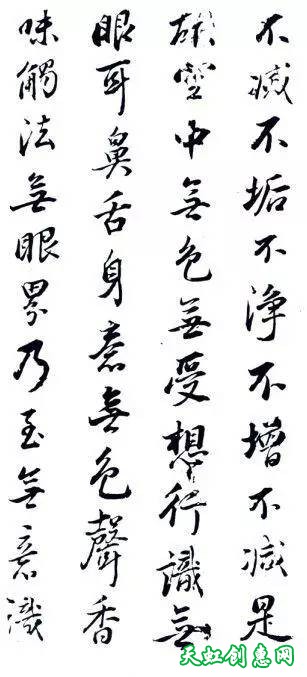 不滅不垢不淨不增不減是
故空中無色無受想行識無
眼耳鼻舌身意無色聲香
味觸法無眼界乃至無意識
天虹创意网